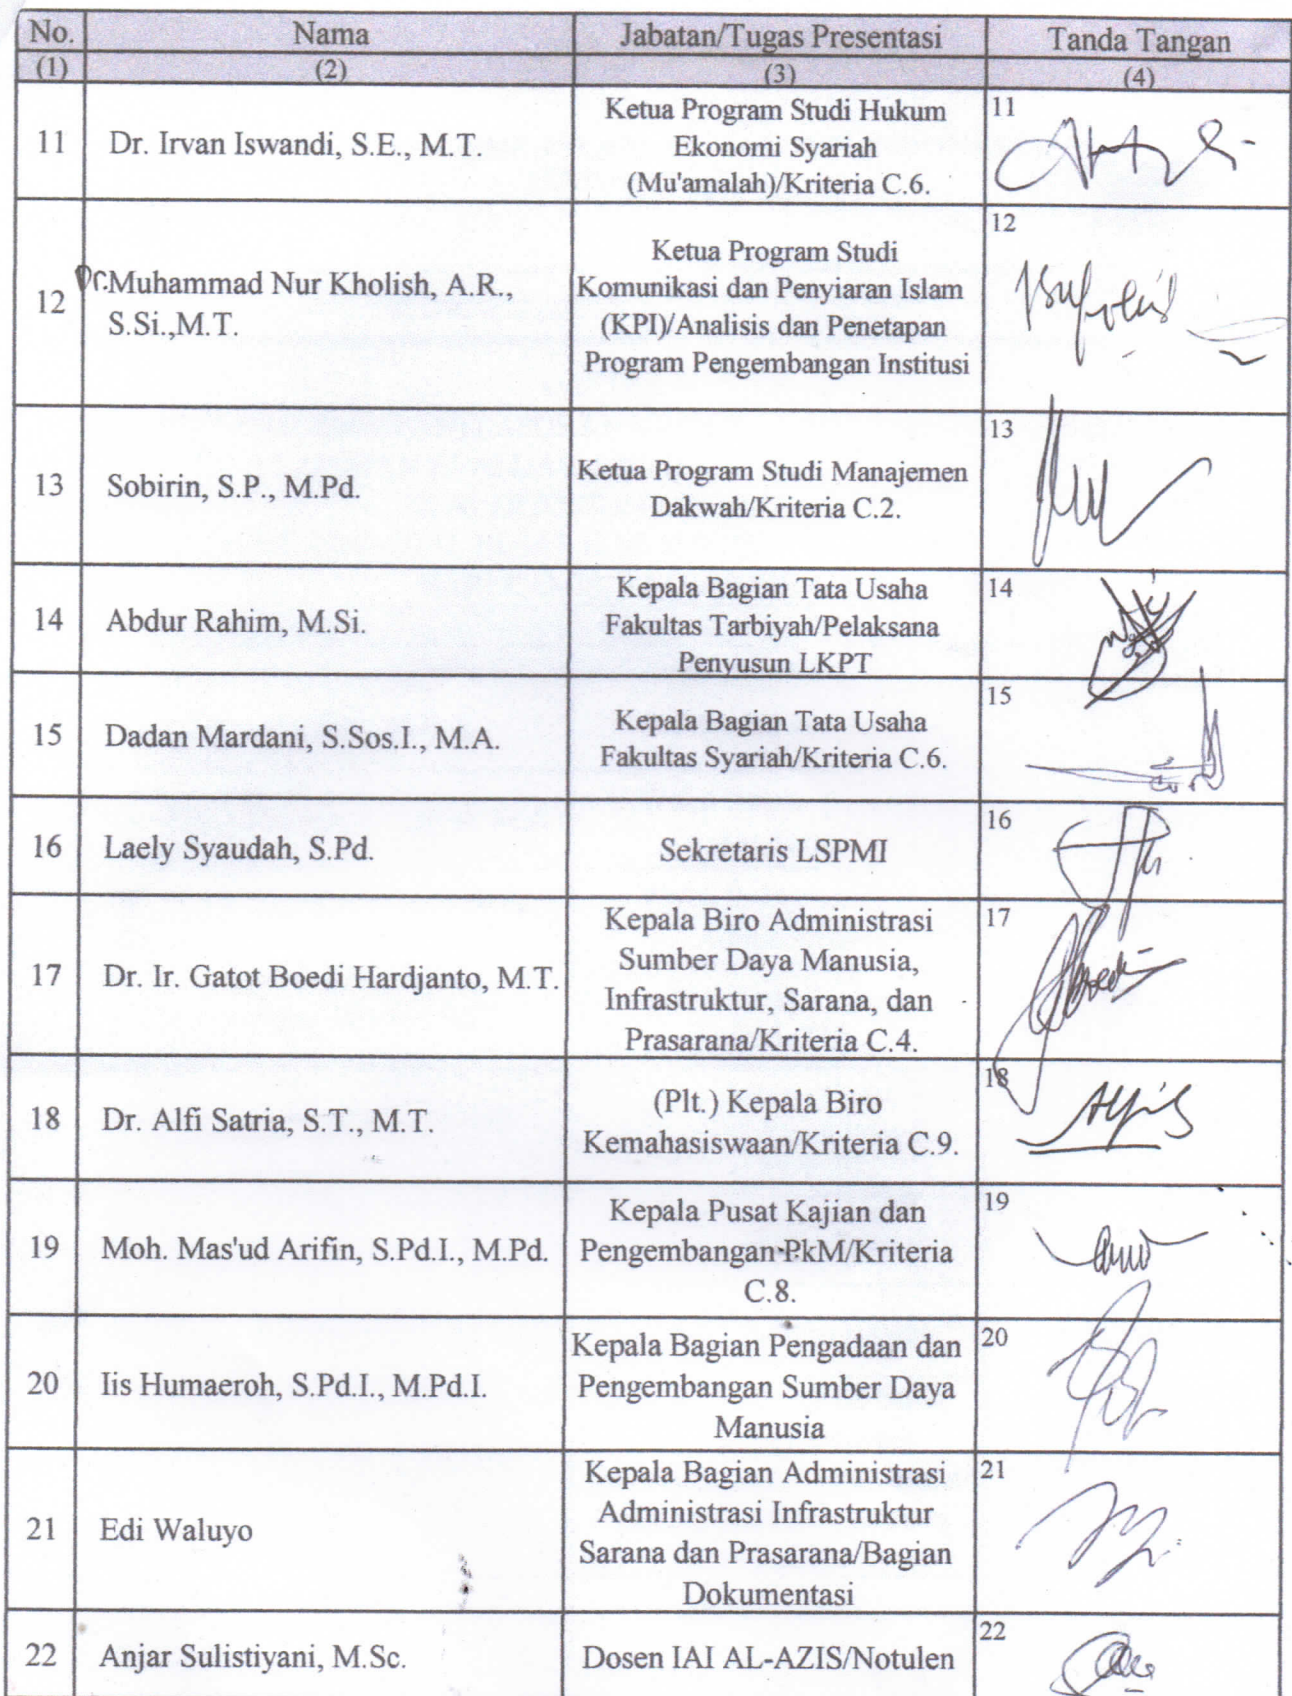 No. Nama Jabatan/Tugas Presentasi Tanda Tangan
(1) (2) (3) (4)
11 Dr. Irvan Iswandi, S.E., M.T.
Ketua Program Studi Hukum
Ekonomi Syariah
(Mu'amalah)/Kriteria C.6.
11
12 Dr. Muhammad Nur Kholish, A.R.,
S.Si.,M.T.
Ketua Program Studi
Komunikasi dan Penyiaran Islam
(KPI)/Analisis dan Penetapan
Program Pengembangan Institusi
12
13 Sobirin, S.P., M.Pd.
Ketua Program Studi Manajemen
Dakwah/Kriteria C.2.
13
14 Abdur Rahim, M.Si.
Kepala Bagian Tata Usaha
Fakultas Tarbiyah/Pelaksana
Penyusun LKPT
14
15 Dadan Mardani, S.Sos.I., M.A.
Kepala Bagian Tata Usaha
Fakultas Syariah/Kriteria C.6.
15
16 Laely Syaudah, S.Pd.
Sekretaris LSPMI
16
17 Dr. Ir. Gatot Boedi Hardjanto, M.T.
Kepala Biro Administrasi
Sumber Daya Manusia,
Infrastruktur, Sarana, dan
Prasarana/Kriteria C.4.
17
18 Dr. Alfi Satria, S.T., M.T.
(Plt.) Kepala Biro
Kemahasiswaan/Kriteria C.9.
18
19 Moh. Mas'ud Arifin, S.Pd.I., M.Pd.
Kepala Pusat Kajian dan
Pengembangan PkM/Kriteria
C.8.
19
20 Iis Humaeroh, S.Pd.I., M.Pd.I.
Kepala Bagian Pengadaan dan
Pengembangan Sumber Daya
Manusia
20
21 Edi Waluyo
Kepala Bagian Administrasi
Administrasi Infrastruktur
Sarana dan Prasarana/Bagian
Dokumentasi
21
22 Anjar Sulistiyani, M.Sc.
Dosen IAI AL-AZIS/Notulen
22